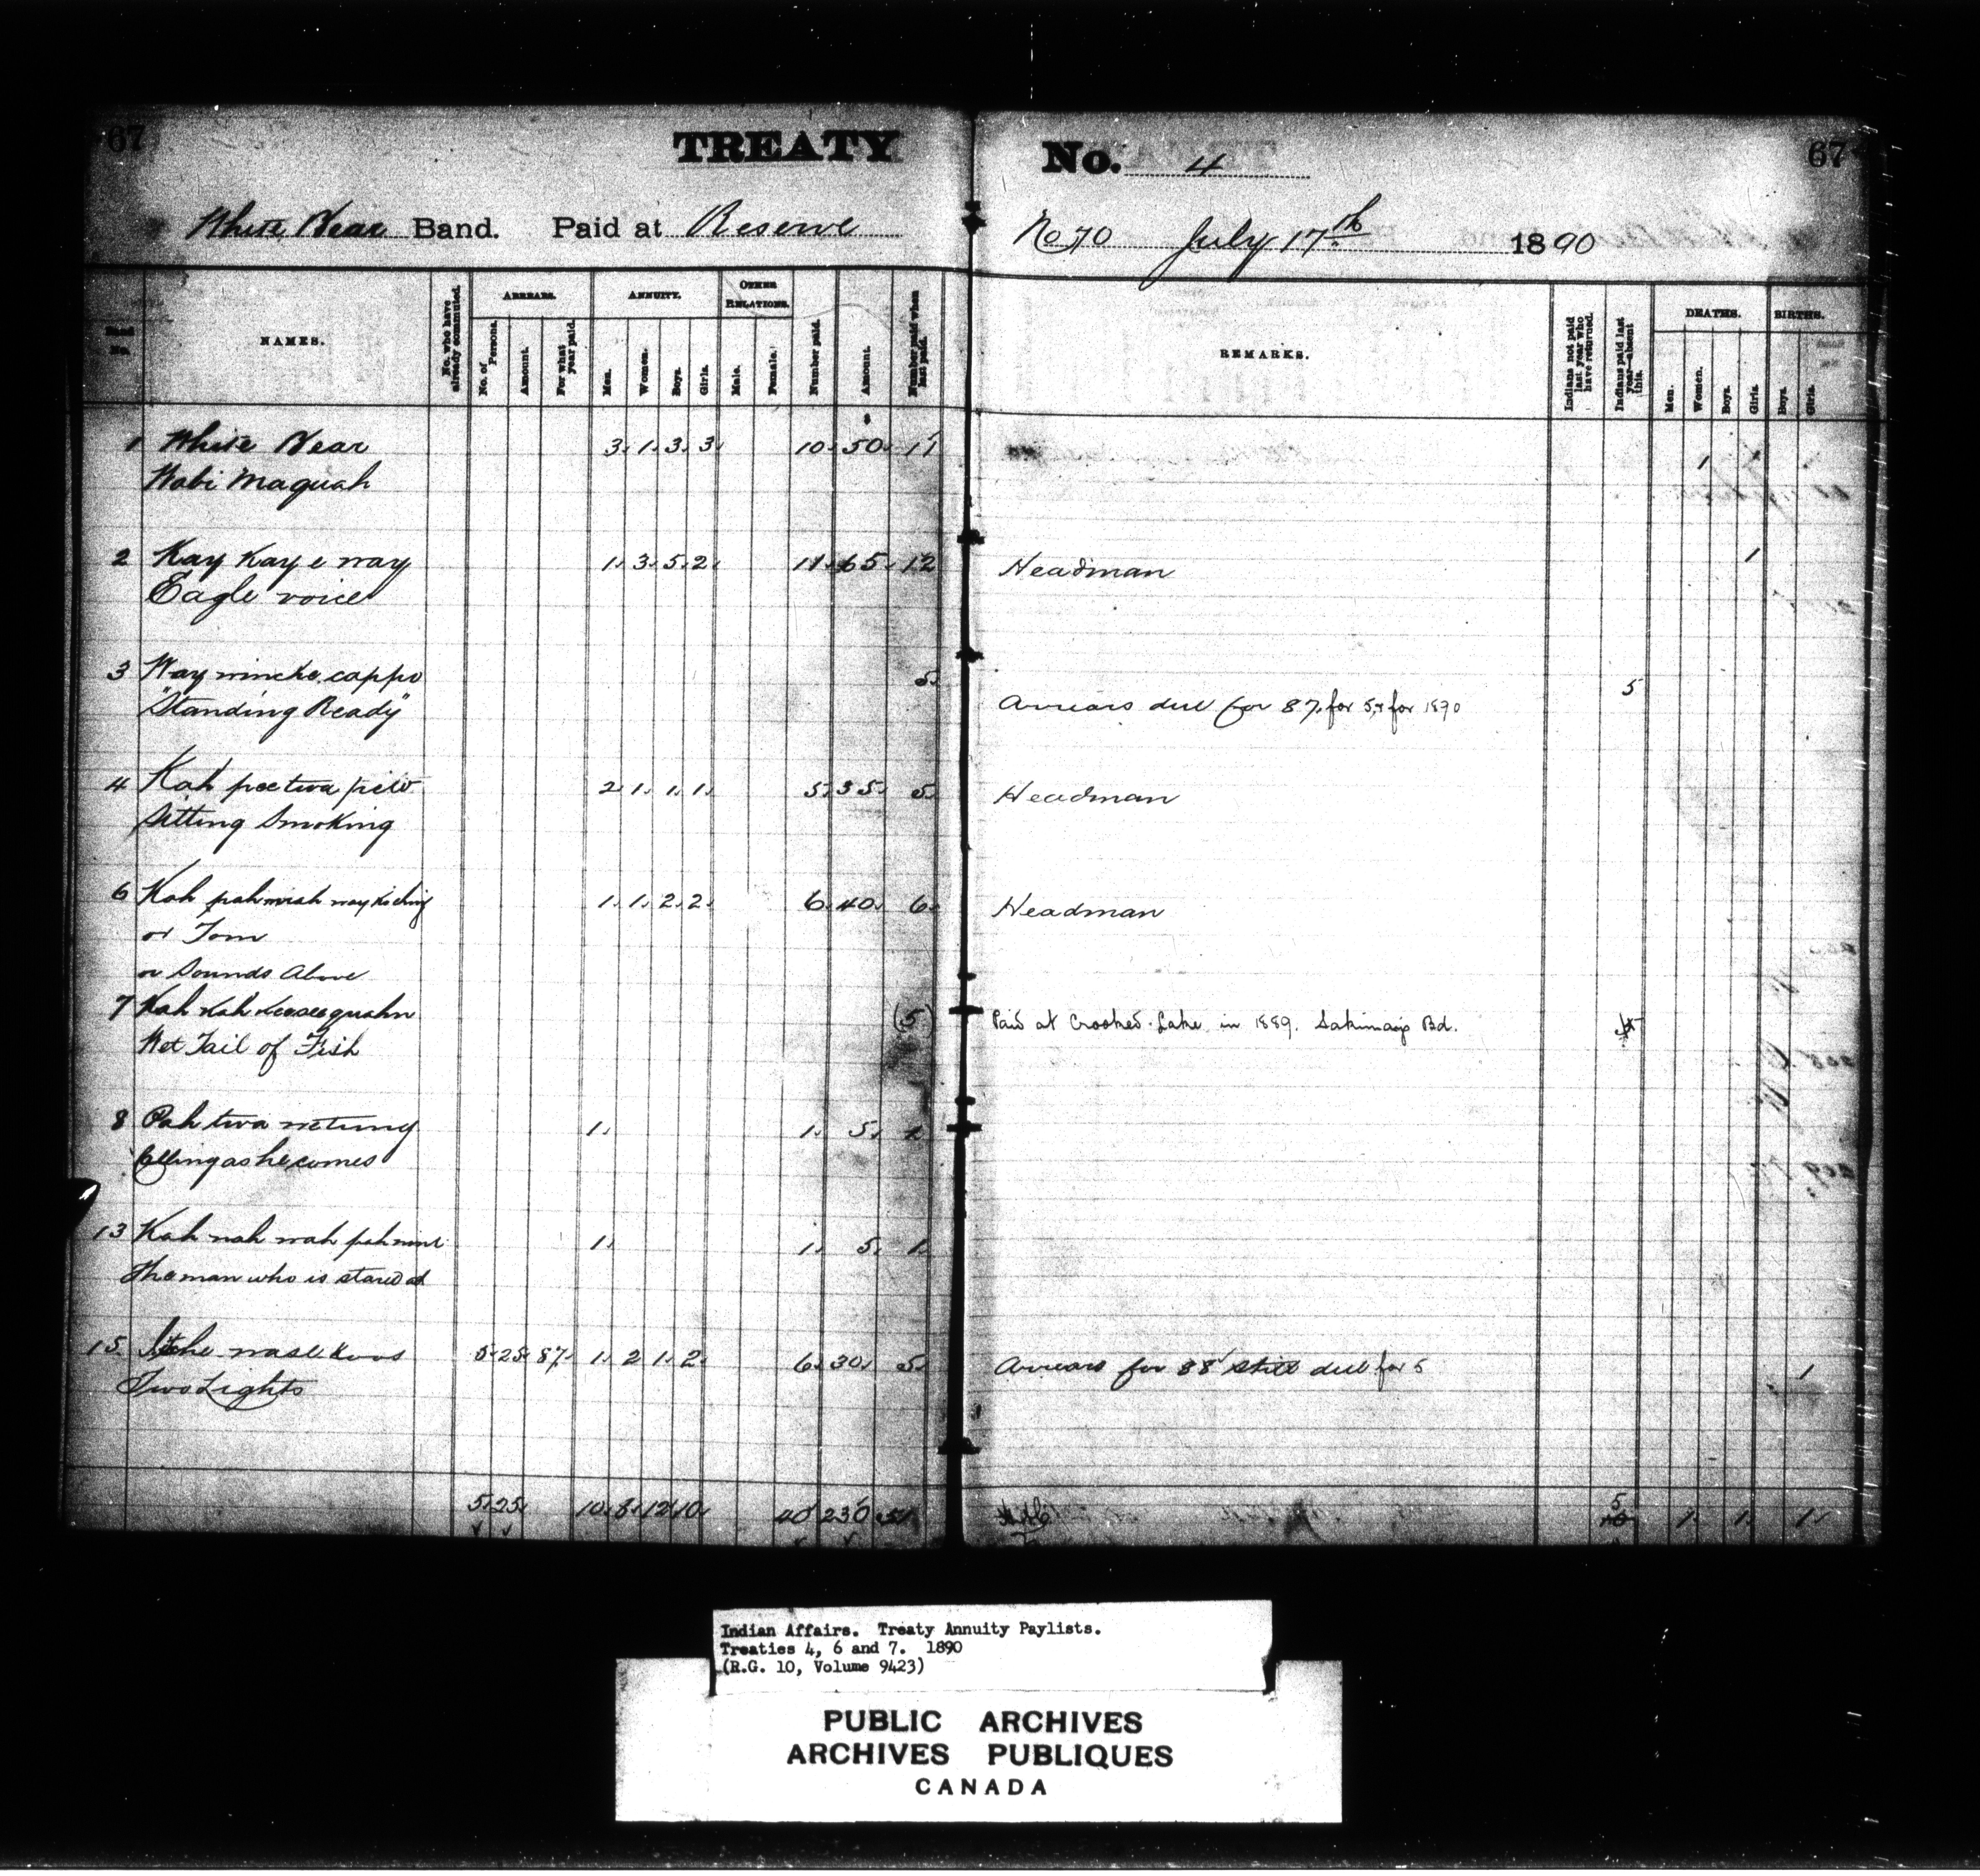 67 TREATY No. 4 67
White Bear Band. Paid at Reserve No 70 July 17th 1890
No.
NAMES.
No. who have already commuted.
ARREARS.
No. of Persons.
Amount.
For what year paid.
ANNUITY.
Men.
Women.
Boys.
Girls.
OTHER RELATIONS.
Male.
Female.
Number paid.
Amount.
Number paid when last paid.
REMARKS.
Indians not paid last year who have returned.
Indians paid last year—absent this.
DEATHS.
Men.
Women.
Boys.
Girls.
BIRTHS.
Boys.
Girls.
1 White Bear 3. 1. 3. 3. 10. 50. 11 1
Wabi Maquah
2 Kay Kay e way 1. 3. 5. 2. 11. 65. 12 Headman 1
Eagle voice
3 Way winche cappo 5. 5
"Standing Ready" Arrears due for 87. for 5, & for 1890
4 Kah pee twa pew 2 1. 1. 1. 5. 35. 5. Headman
Sitting Smoking
6 Kah pah mah way ki ching 1. 1. 2. 2. 6. 40. 6. Headman
or Tom
or Sounds Above
7 Kah Kah (5) Paid at Crooked Lake in 1889. Sakimay's Bd.
Wet Tail of Fish
8 Pah twa we tung 1. 1. 5. 1.
Calling as he comes
13 Kah nah wah pah 1. 1. 5. 1.
The man who is stared at
15. 5. 25. 87. 1. 2 1. 2. 6. 30. 5. Arrears for 88 still due for 5 1
Two Lights
5. 25. 10. 8. 12 10. 40 230 51 5. 10 1. 1. 1.
Indian Affairs. Treaty Annuity Paylists.
Treaties 4, 6 and 7. 1890
(R.G. 10, Volume 9423)
PUBLIC ARCHIVES
ARCHIVES PUBLIQUES
CANADA